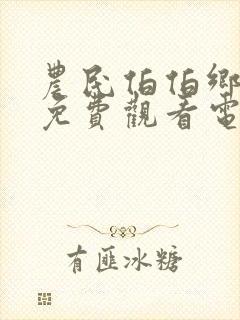 農民伯伯鄉
免費觀看電
有匪冰糖